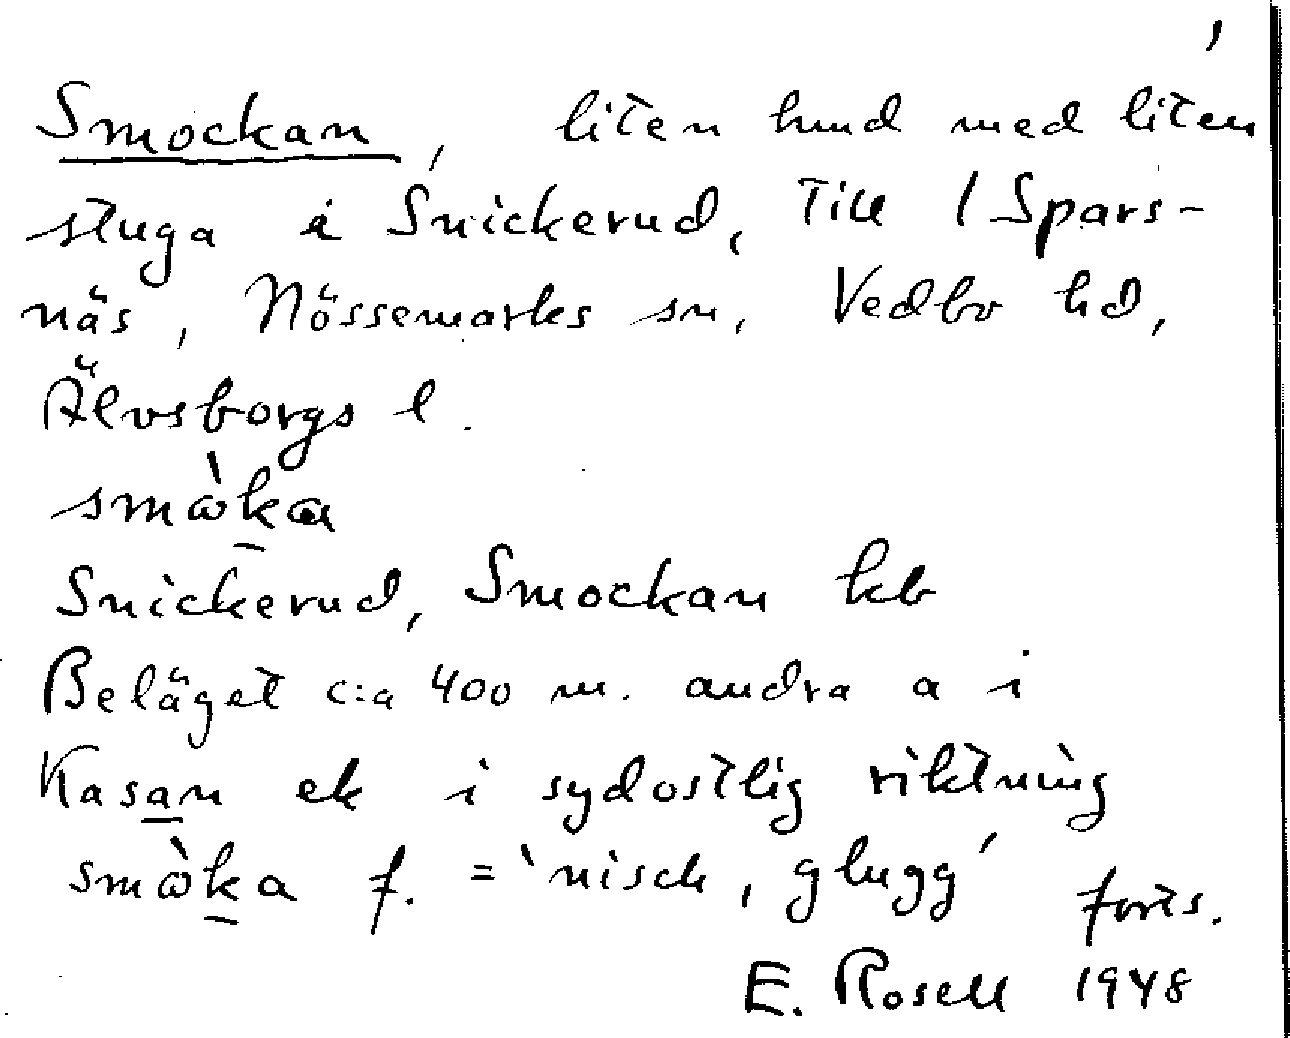 1
Smockan, liten hund med liten
stuga å Snickerud, till 1 Spars-
näs, Nössemarks sn, Vedbo hd,
Älvsborgs l.
smὼka
Snickerud, Smockan kb
Beläget c:a 400 m. andra a i
Kasan ek i sydostlig riktning
smὼka f. = 'nisch, glugg' forts.
E. Rosell 1948